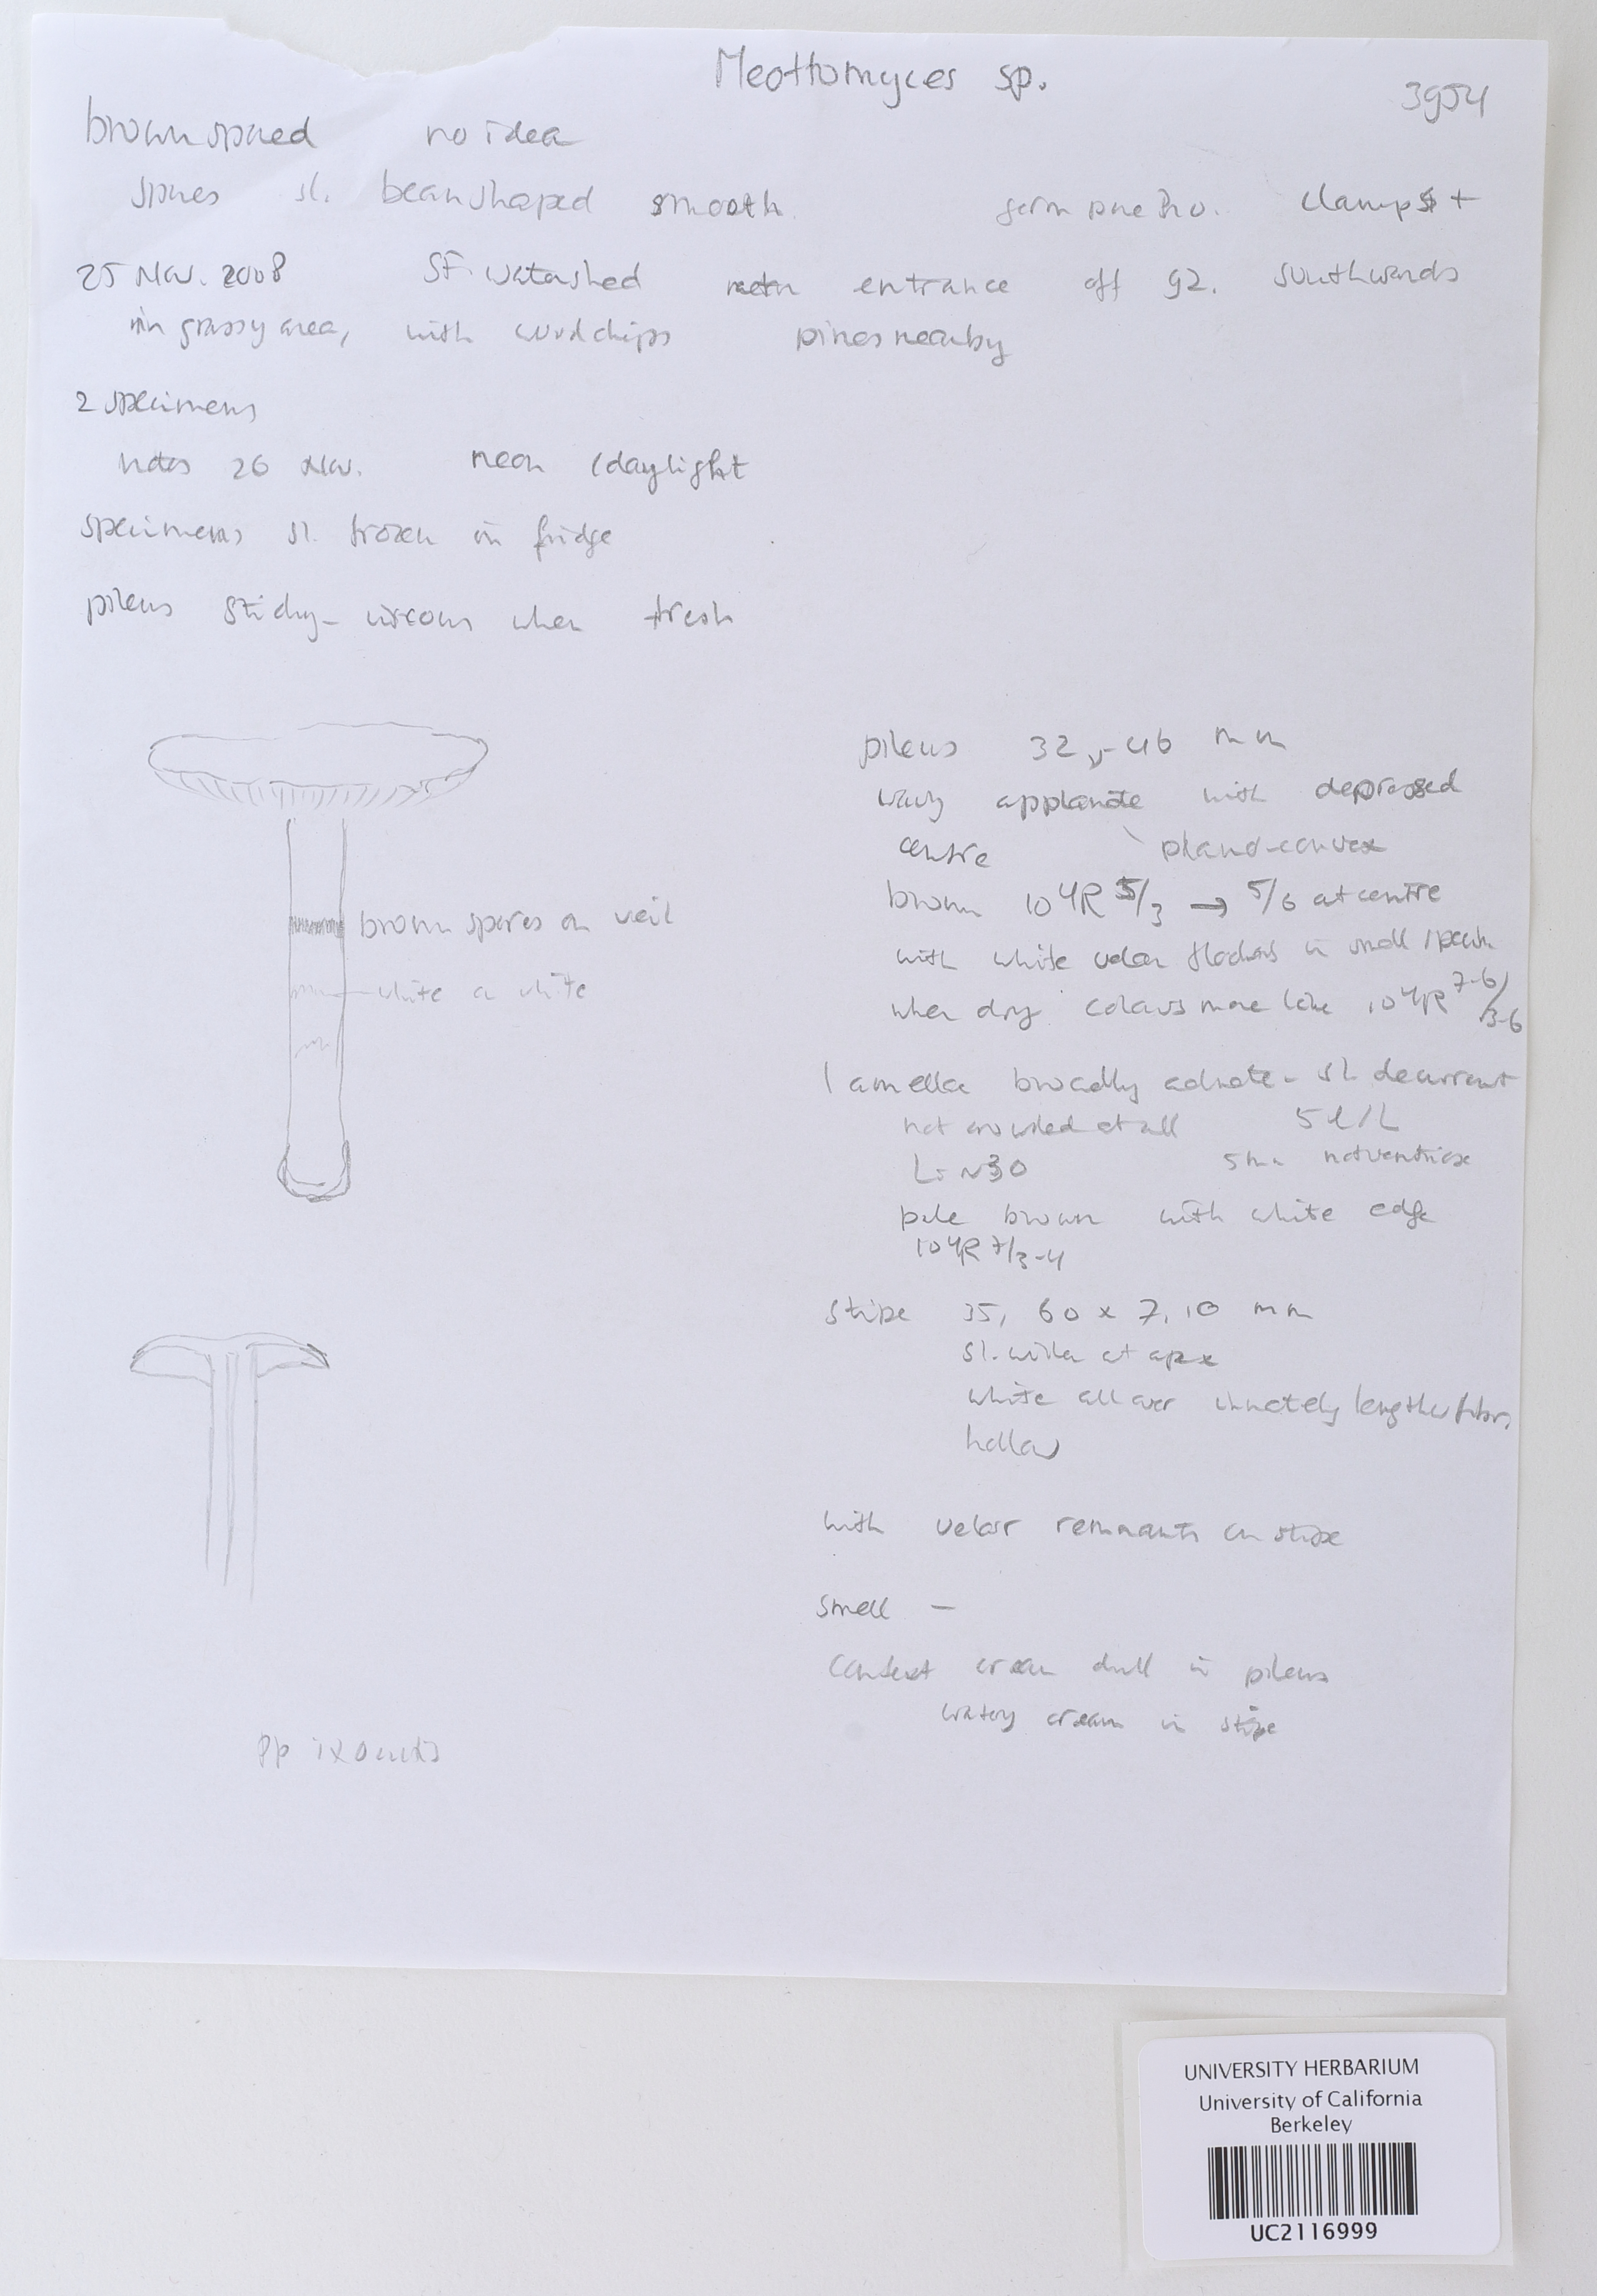 Meottomyces sp.
3954
brownspored no idea
spores sl. beanshaped smooth germ pore no. clamps +
25 Nov. 2008 SF. watershed entrance off 92. southwards
in grassy area, with woodchips pines nearby
2 specimens
notes 26 Nov. neon /daylight
specimens sl. frozen in fridge
pileus sticky-viscous when fresh
brown spores on veil
white
white
pileus 32, -46 mm
wavy applanate with depressed
centre plano-convex
brown 10YR 5/3 → 5/6 at centre
with white velar flocks in small specim
when dry colours more like 10YR 7-6/3-6
lamellae broadly adnate - sl. decurrent
not crowded at all 5 l/L
L: ~30 5mm not ventricose
pale brown with white edge
10YR 7/3-4
stipe 35, 60 x 7, 10 mm
sl. wider at apex
white all over innately lengthw fibr.
hollow
with velar remnants on stipe
smell -
context cream dull in pileus
watery cream in stipe
pp ixocutis
UNIVERSITY HERBARIUM
University of California
Berkeley
UC2116999